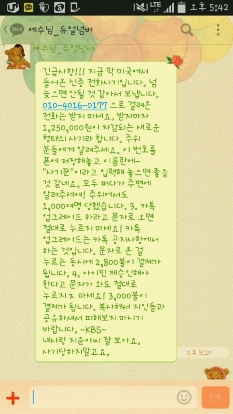 오후 5:42
예수님_듀얼넘버
예수님_듀얼넘버
긴급사항!!! 지금 막 미국에서
들어온 신종 전화사기입니다. 넘
늦으면 안될 것 같아서 보냅니다.
010-4016-0177 으로 걸려온
전화는 받지 마세요. 받자마자
1,250,000원이 차감되는 새로운
형태의 사기라 합니다. 주위
분들에게 알려주세요. 이 번호를
폰에 저장해놓고 이름란에~
"사기꾼"이라고 입력해 놓으면 좋을
것 같네요. 모두 퍼다가 주변에
알려주세여! 주위에서도
1,000여명 당했습니다. 3, 카톡
업그레이드 하라고 문자로 오면
절대로 누르지 마세요! 카톡
업그레이드는 카톡 공지사항에서
하는 것입니다. 문자로 온 걸
누르는 동시에 2,800불이 결제가
됩니다. 4, 아이핀 재승인해야
한다고 문자가 와도 절대로
누르지 마세요! 3,000불이
결제가 됩니다. 복사해서 지인들과
공유하셔서 피해보지 마시기
바랍니다. -KBS-
내사랑 지윤아씨 잘 보아요.
사기당하지말고요.
오후 5:10
전송